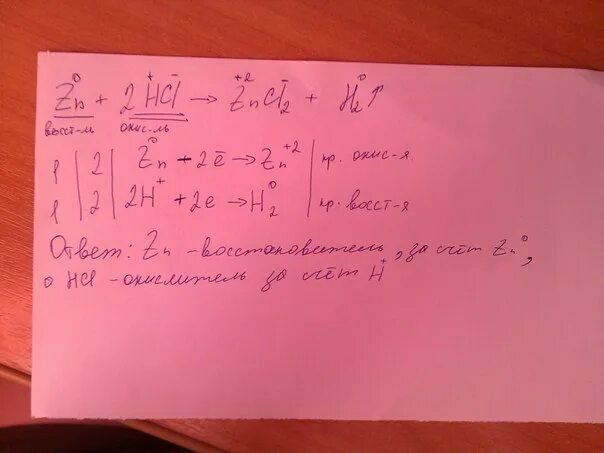 Zn⁰ + 2H⁺Cl⁻ → Zn⁺²Cl⁻₂ + H⁰₂↑
восст-ль окис-ль
1 | 2 | Zn⁰ - 2ē → Zn⁺² | пр. окис-я
1 | 2 | 2H⁺ + 2e → H⁰₂ | пр. восст-я
Ответ: Zn - восстановитель, за счёт Zn⁰,
а HCl - окислитель за счёт H⁺